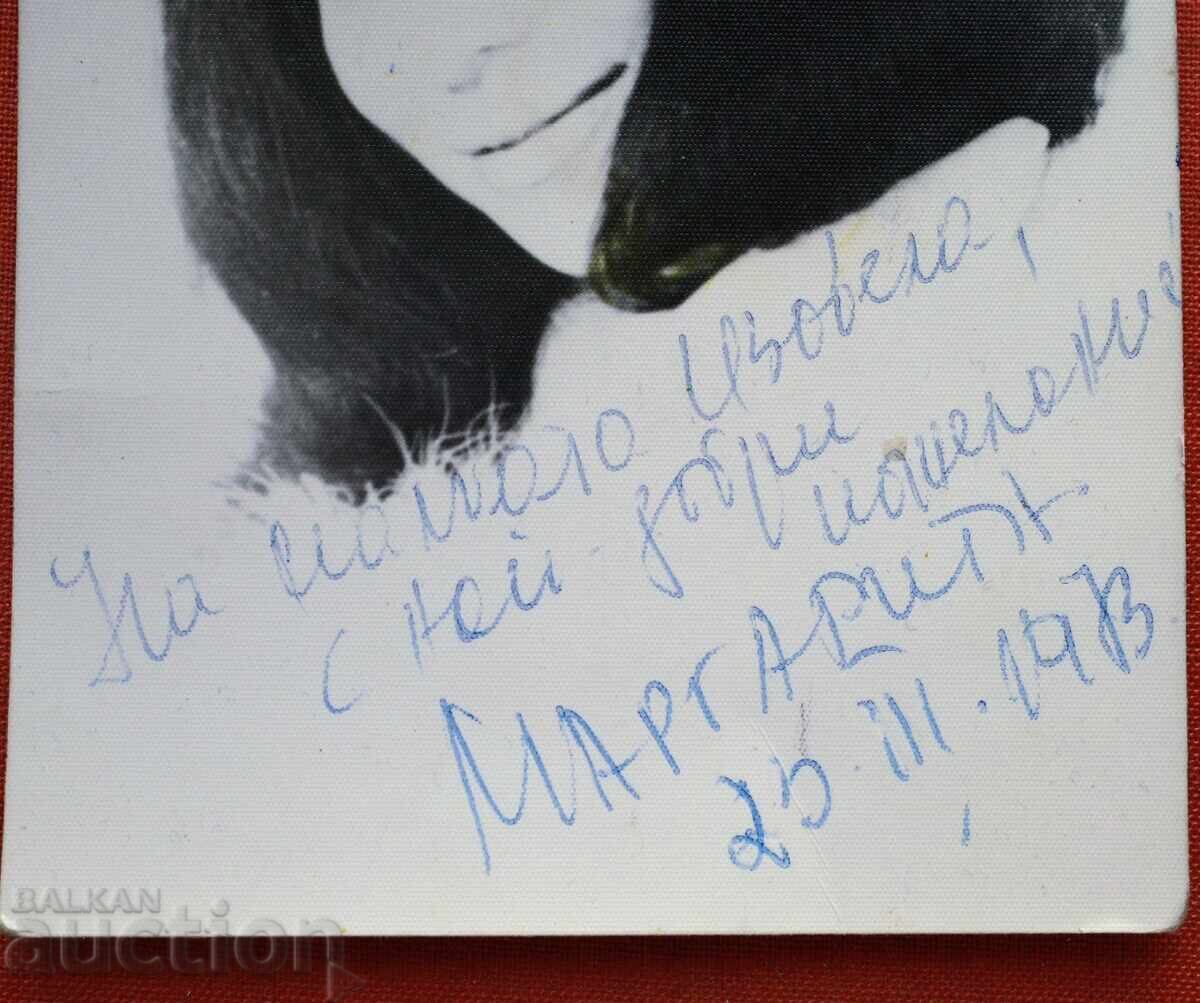 На малката Изабела,
с най-добри
пожелания!
МАРГАРИТА
25.III.1973
BALKAN
auction